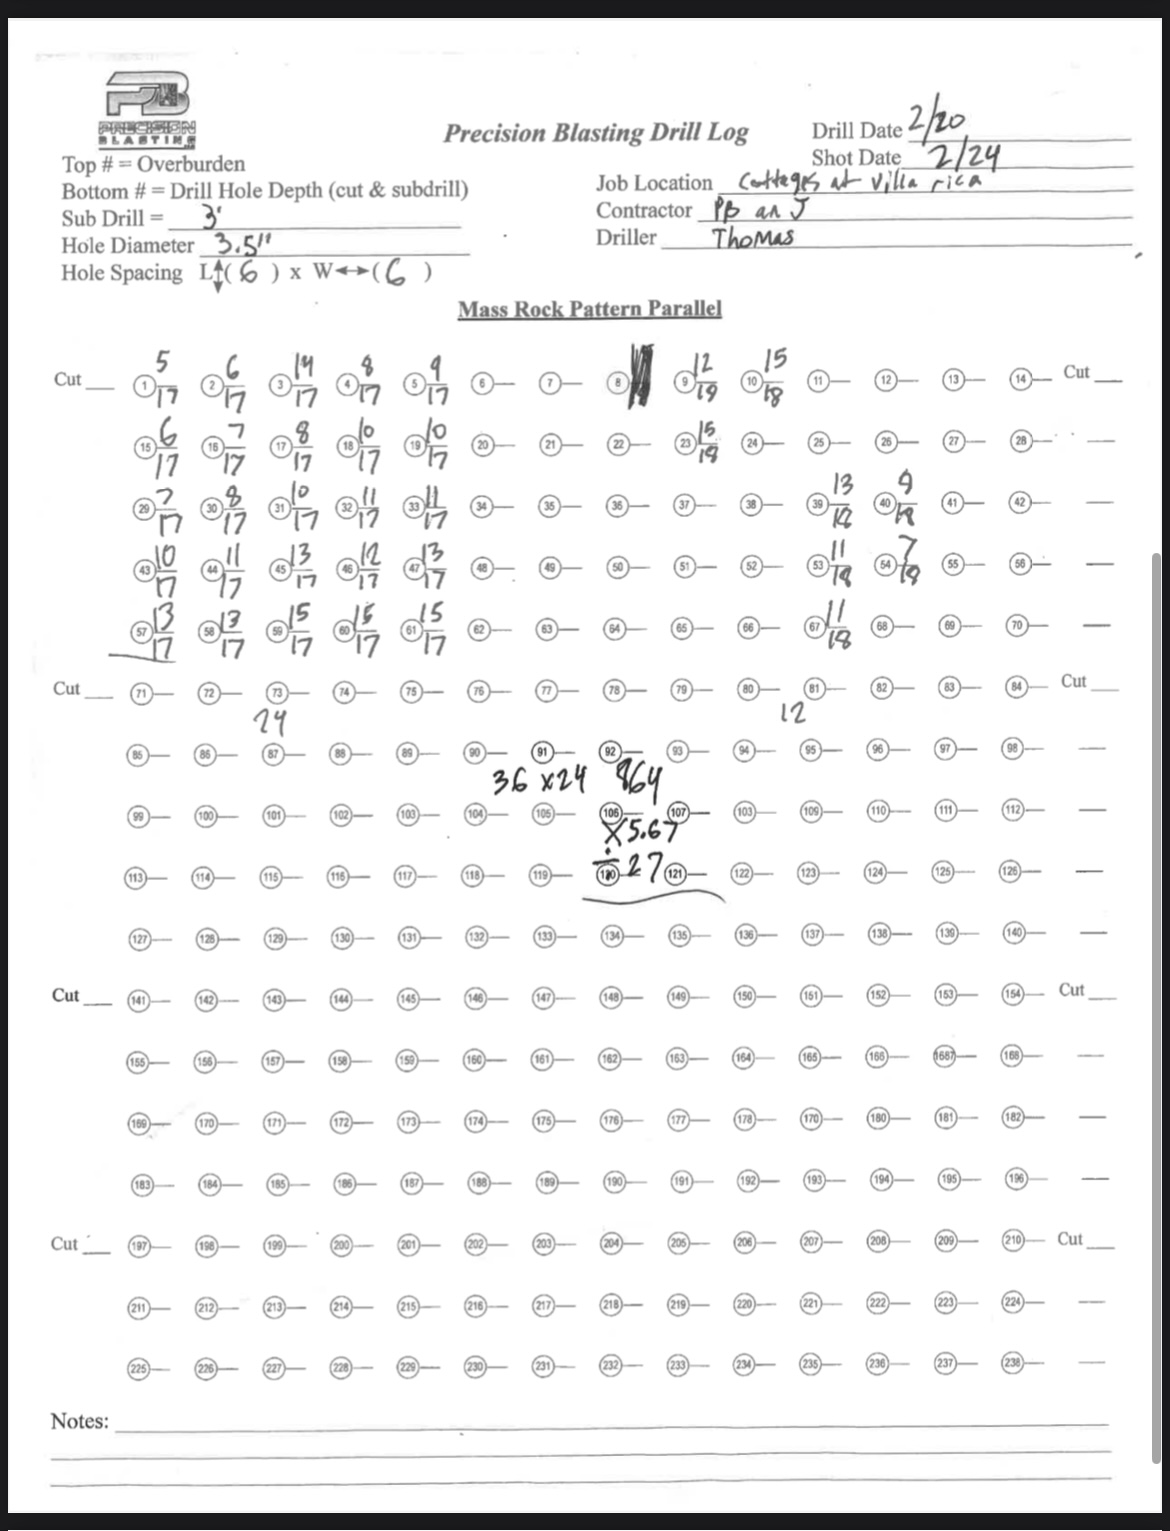 PB
PRECISION
BLASTING
Precision Blasting Drill Log
Drill Date 2/20
Shot Date 2/24
Top # = Overburden
Bottom # = Drill Hole Depth (cut & subdrill)
Sub Drill = 3'
Hole Diameter 3.5"
Hole Spacing L↕( 6 ) x W↔( 6 )
Job Location Cottages at Villa rica
Contractor PB an J
Driller Thomas
Mass Rock Pattern Parallel
5 6 14 8 9 12 15
Cut 1 17 2 17 3 17 4 17 5 17 6 7 8 9 19 10 18 11 12 13 14 Cut
6 7 8 10 10 15
15 17 16 17 17 17 18 17 19 17 20 21 22 23 19 24 25 26 27 28
7 8 10 11 11 13 9
29 17 30 17 31 17 32 17 33 17 34 35 36 37 38 39 18 40 18 41 42
10 11 13 12 13 11 7
43 17 44 17 45 17 46 17 47 17 48 49 50 51 52 53 18 54 18 55 56
13 13 15 15 15 11
57 17 58 17 59 17 60 17 61 17 62 63 64 65 66 67 18 68 69 70
Cut 71 72 73 74 75 76 77 78 79 80 81 82 83 84 Cut
24 12
85 86 87 88 89 90 91 92 93 94 95 96 97 98
36 x24 864
99 100 101 102 103 104 105 106 107 103 109 110 111 112
x 5.67
÷ 27
113 114 115 116 117 118 119 120 121 122 123 124 125 126
127 128 129 130 131 132 133 134 135 136 137 138 139 140
Cut 141 142 143 144 145 146 147 148 149 150 151 152 153 154 Cut
155 156 157 158 159 160 161 162 163 164 165 166 1687 168
169 170 171 172 173 174 175 176 177 178 170 180 181 182
183 184 185 186 187 188 189 190 191 192 193 194 195 196
Cut 197 198 199 200 201 202 203 204 205 206 207 208 209 210 Cut
211 212 213 214 215 216 217 218 219 220 221 222 223 224
225 226 227 228 229 230 231 232 233 234 235 236 237 238
Notes: